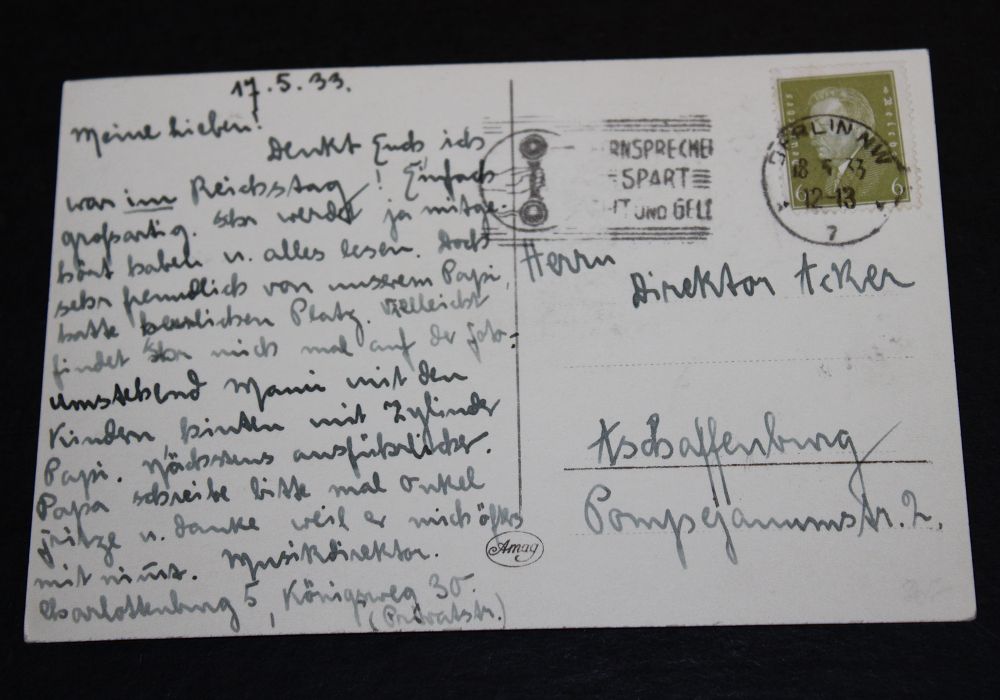 17.5.33.
Meine Lieben!
Denkt Euch ich
war im Reichstag! Einfach
großartig. Ihr werdet ja mitge-
hört haben u. alles lesen. Doch
sehr freundlich von unserem Papi,
hatte herrlichen Platz. Vielleicht
findet Ihr mich mal auf der Foto.
Umstehend Mami mit den
Kindern, hinten mit Zylinder
Papi. Nächstens ausführlicher.
Papa schreibe bitte mal Onkel
Fritze u. danke weil er mich öfters
mit nimt. Musikdirektor.
Charlottenburg 5, Königsweg 30.
(Privatstr.)
Amag
RNSPRECHER
SPART
HT UND GELD
BERLIN NW
18.5.33
12-13
7
6 6
Herrn
Direktor Acker
Aschaffenburg
Pompejanumstr. 2.